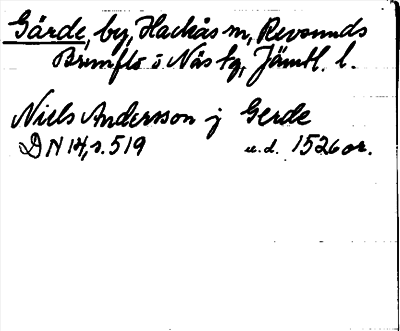 Gärde, by, Hackås sn, Revsunds
Brunflo o Näs tg, Jämtl. l.
Niels Andersson j Gerde
DN 14, s. 519 u.d. 1526 or.